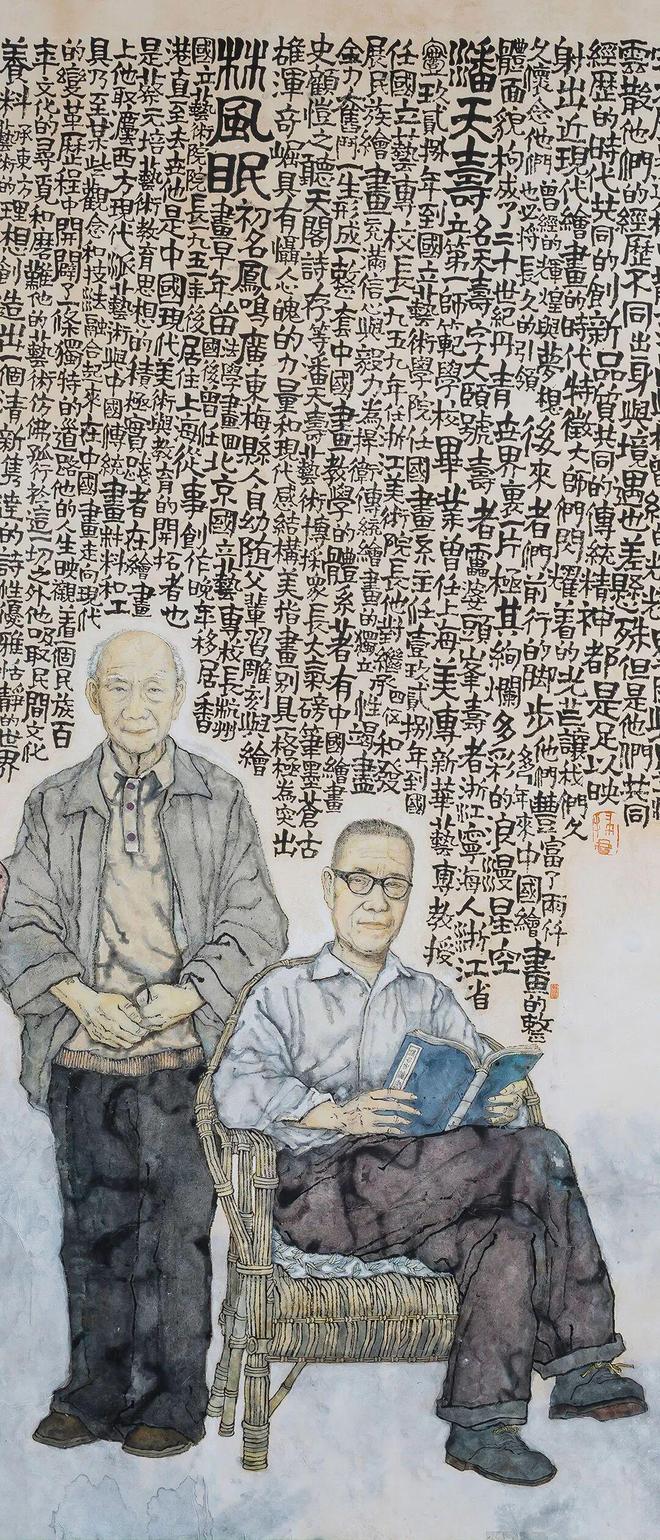 雲散他們的經歷不同出身與境遇也差懸殊但是他們共同
經歷的時代共同的創新品質共同的傳統精神都是足以映
射出近現代繪畫的時代特徵大師們閃耀着的光芒讓我們久
久懷念他們曾經的輝煌與夢想也必將長久的引領後來者們前行的脚步他們豐富了兩仟多年來中國繪畫的整
體面貌构成了二十世紀丹青世界裏一片極其絢爛多彩的浪漫星空
潘天壽名天壽字大頤號壽者靁婆頭峯壽者浙江寧海人浙江省
立第一師範學校畢業曾任上海美專新華藝專教授
壹玖貳捌年到國立藝術學院任國畫系主任壹玖貳捌年到國
任國立藝專校長一九五九年任浙江美術院長他對繼承和發
展民族繪畫充滿信心與毅力為捍衛傳統繪畫的獨立性竭盡
全力奮鬥一生形成一整套中國畫教學的體系著有中國繪畫
史顧愷之聽天閣詩存等潘天壽藝術博採衆長大氣磅礴筆墨蒼古
雄渾奇崛具有懾人心魄的力量和現代感結構美指畫別具一格極為突出
林風眠初名鳳鳴廣東梅縣人自幼随父輩習雕刻與繪
畫早年留法學畫回國後曾任北京國立藝專校長杭州
國立藝術院院長一九五一年後居住上海從事創作晚年移居香
港直至去世他是中國現代美術與教育的開拓者也
是蔡元培藝術教育思想的積極實踐者在繪畫
上他取西方現代派藝術與中國傳統畫料和工
具乃至某些觀念和技法融合起來在中國畫走向現代
的變革歷程中開闢了一條獨特的道路他的人生映觀着個民族百
年文化的尋覓和磨難他的藝術仿佛孤行於這一切之外他吸取民間文化
養料承東方藝術的理想創造出一個清新雋逸的詩性優雅恬靜的世界